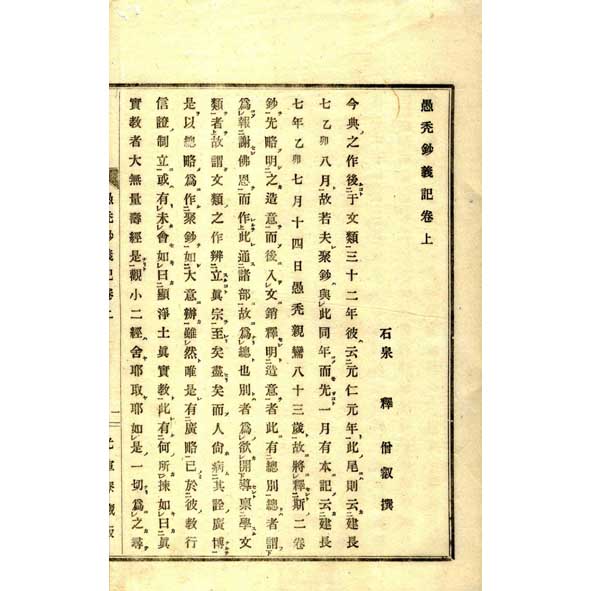 愚禿鈔義記卷上
石泉 釋 僧叡 撰
今典之作後于文類三十二年彼云元仁元年此尾則云建長
七乙卯八月故若夫聚鈔與此同年而先一月有本記云建長
七年乙卯七月十四日愚禿親鸞八十三歲故將釋斯二卷
鈔先略明之造意而後入文銷釋明造意者此有總別總者謂
爲報謝佛恩而作此通諸部故爲總也別者爲欲開導稟學文
類者故謂文類之作辨立眞宗至矣盡矣而人尙病其詮廣博
是以總略爲作聚鈔如大意辦雖然唯是有廣略已於彼教行
信證制立或有未會如曰顯淨土眞實教此有何所揀如曰眞
實教者大無量壽經是觀小二經舍耶取耶如是一切爲之尋
愚禿鈔義記卷上